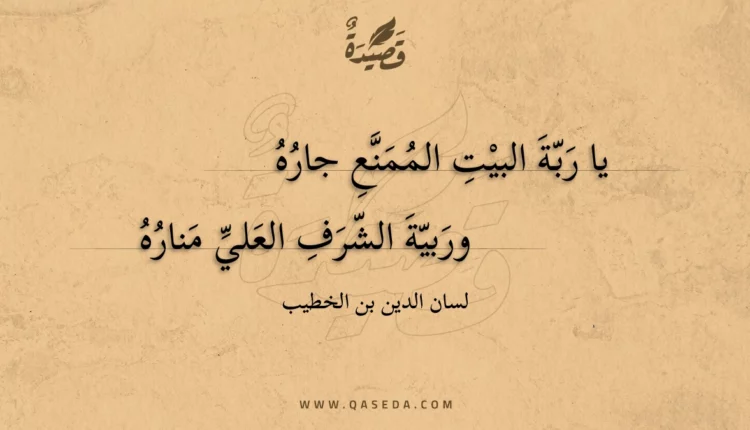 قَصِيدَةٌ
يا رَبّةَ البيْتِ المُمَنَّعِ جارُهُ
ورَبيّةَ الشّرَفِ العَليِّ مَنارُهُ
لسان الدين بن الخطيب
WWW.QASEDA.COM